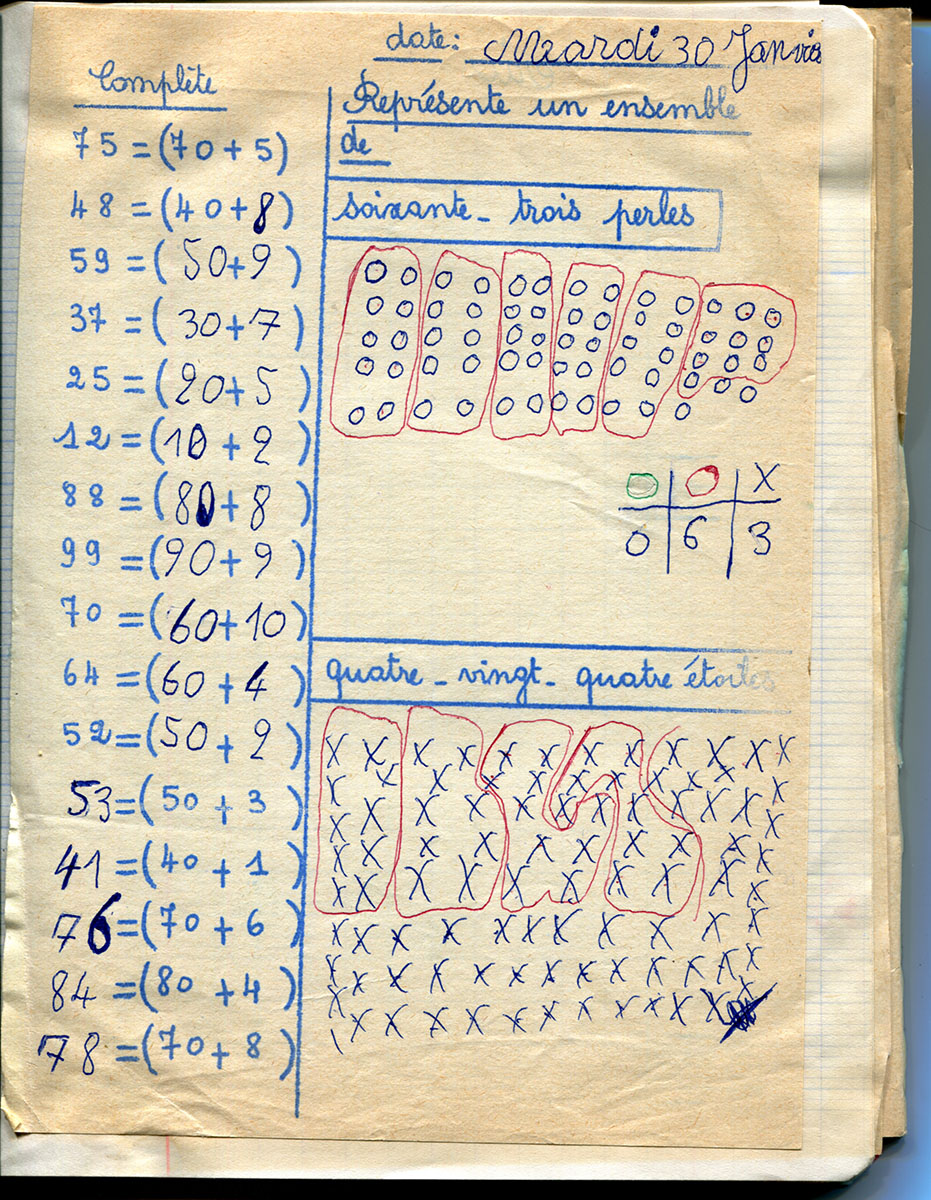 date: Mardi 30 Janvier
Complète
75 = (70 + 5)
48 = (40 + 8)
59 = (50 + 9)
37 = (30 + 7)
25 = (20 + 5)
12 = (10 + 2)
88 = (80 + 8)
99 = (90 + 9)
70 = (60 + 10)
64 = (60 + 4)
52 = (50 + 2)
53 = (50 + 3)
41 = (40 + 1)
76 = (70 + 6)
84 = (80 + 4)
78 = (70 + 8)
Représente un ensemble
de
soixante-trois perles
X
0 6 3
quatre-vingt-quatre étoiles